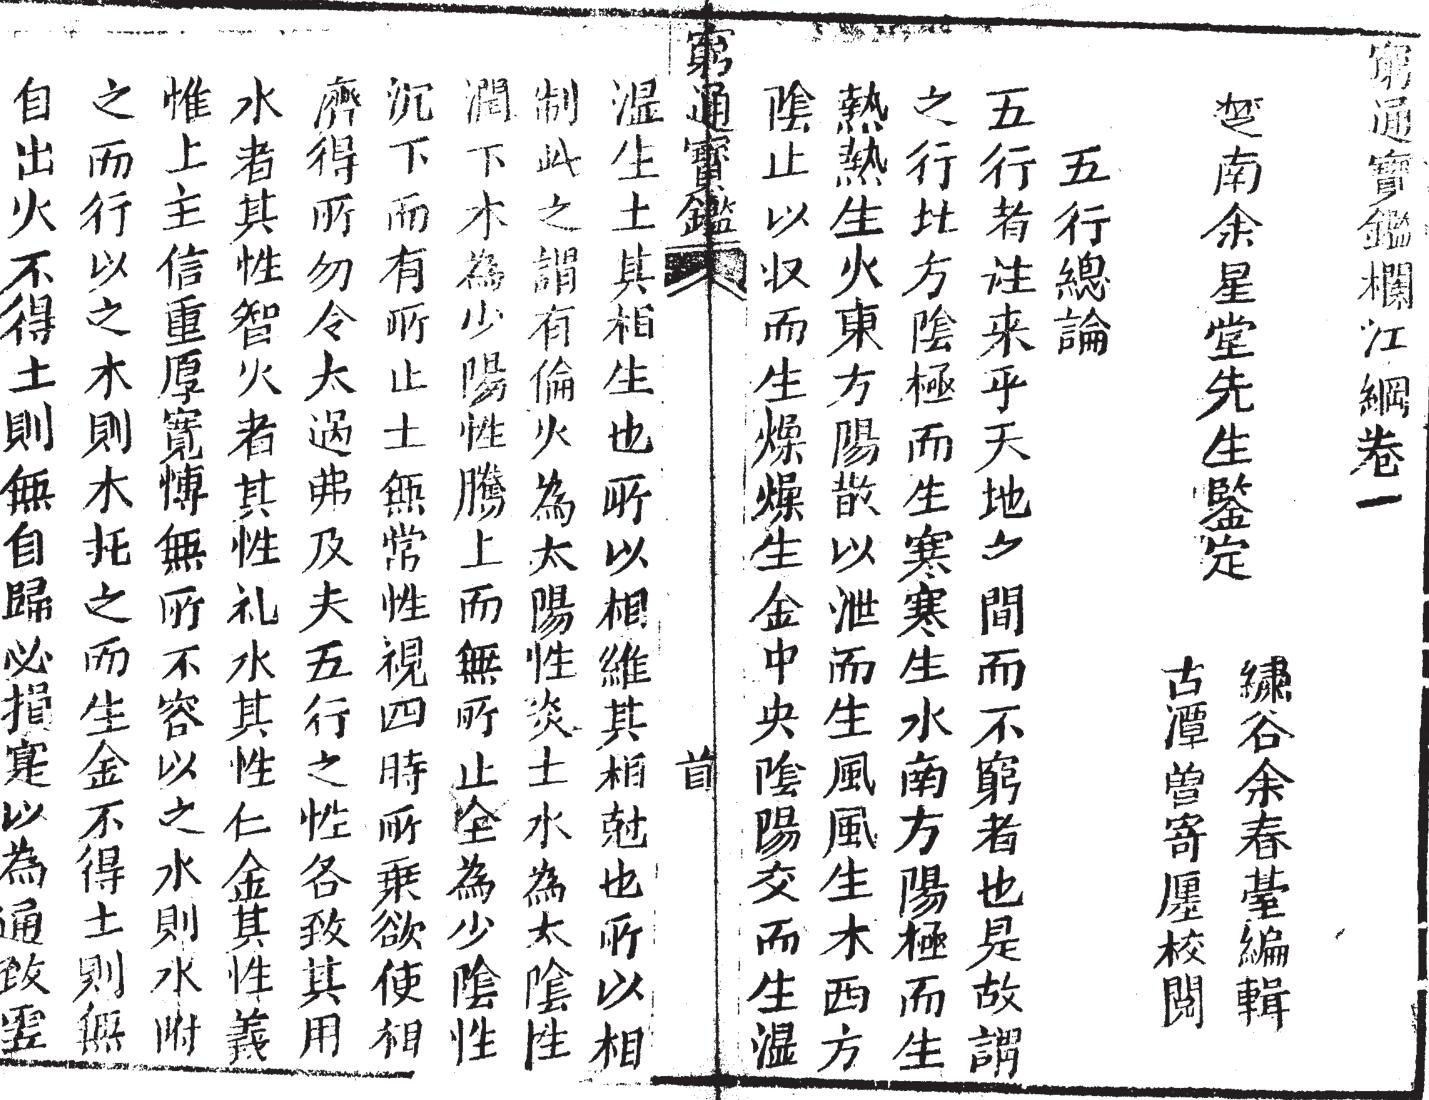 窮通寶鑑欄江綱卷一
楚南余星堂先生鑒定
繡谷余春臺編輯
古潭曾寄厘校閱
五行總論
五行者往来乎天地之間而不窮者也是故謂
之行北方陰極而生寒寒生水南方陽極而生
熱熱生火東方陽散以泄而生風風生木西方
陰止以収而生燥燥生金中央陰陽交而生濕
窮通寶鑑
首
濕生土其相生也所以相維其相尅也所以相
制此之謂有倫火為太陽性炎土水為太陰性
潤下木為少陽性騰上而無所止全為少陰性
沉下而有所止土無常性視四時所乗欲使相
濟得所勿令太過弗及夫五行之性各致其用
水者其性智火者其性礼水其性仁金其性義
惟上主信重厚寛慱無所不容以之水則水附
之而行以之木則木托之而生金不得土則無
自出火不得土則無自歸必損寔以為通致雲